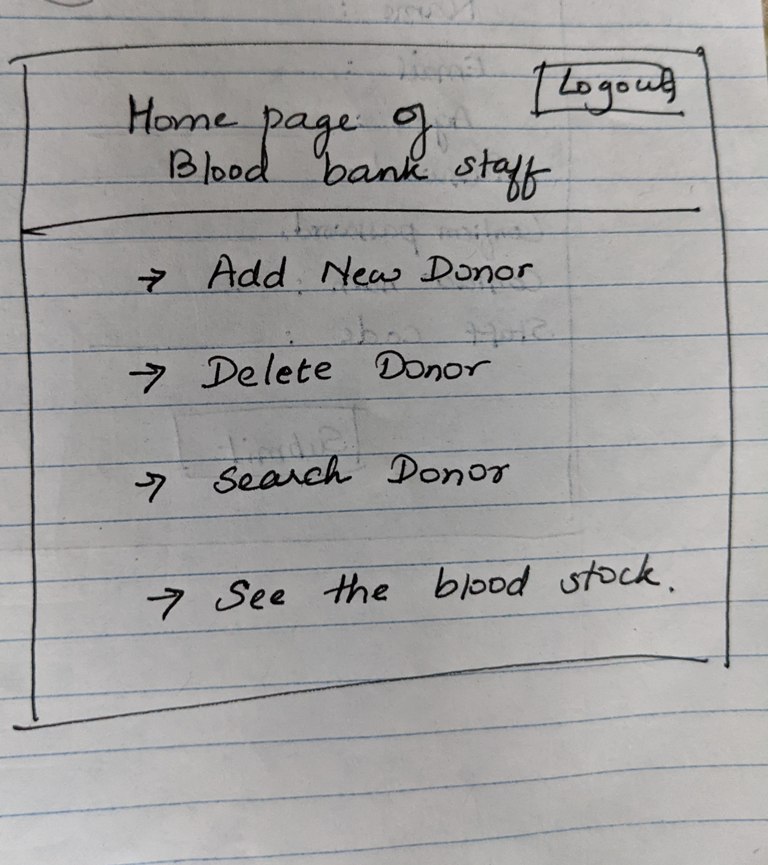 Logout
Home page of
Blood bank staff
→ Add New Donor
→ Delete Donor
→ Search Donor
→ See the blood stock.